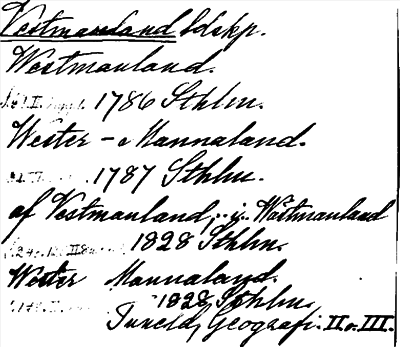 Vestmanland ldskp.
Westmanland.
1786 Sthlm.
Wester-Mannaland.
1787 Sthlm.
af Vestmanland, i Wästmanland
1828 Sthlm.
Wester Mannaland.
1828 Sthlm.
Tuneld, Geografi. II o. III.